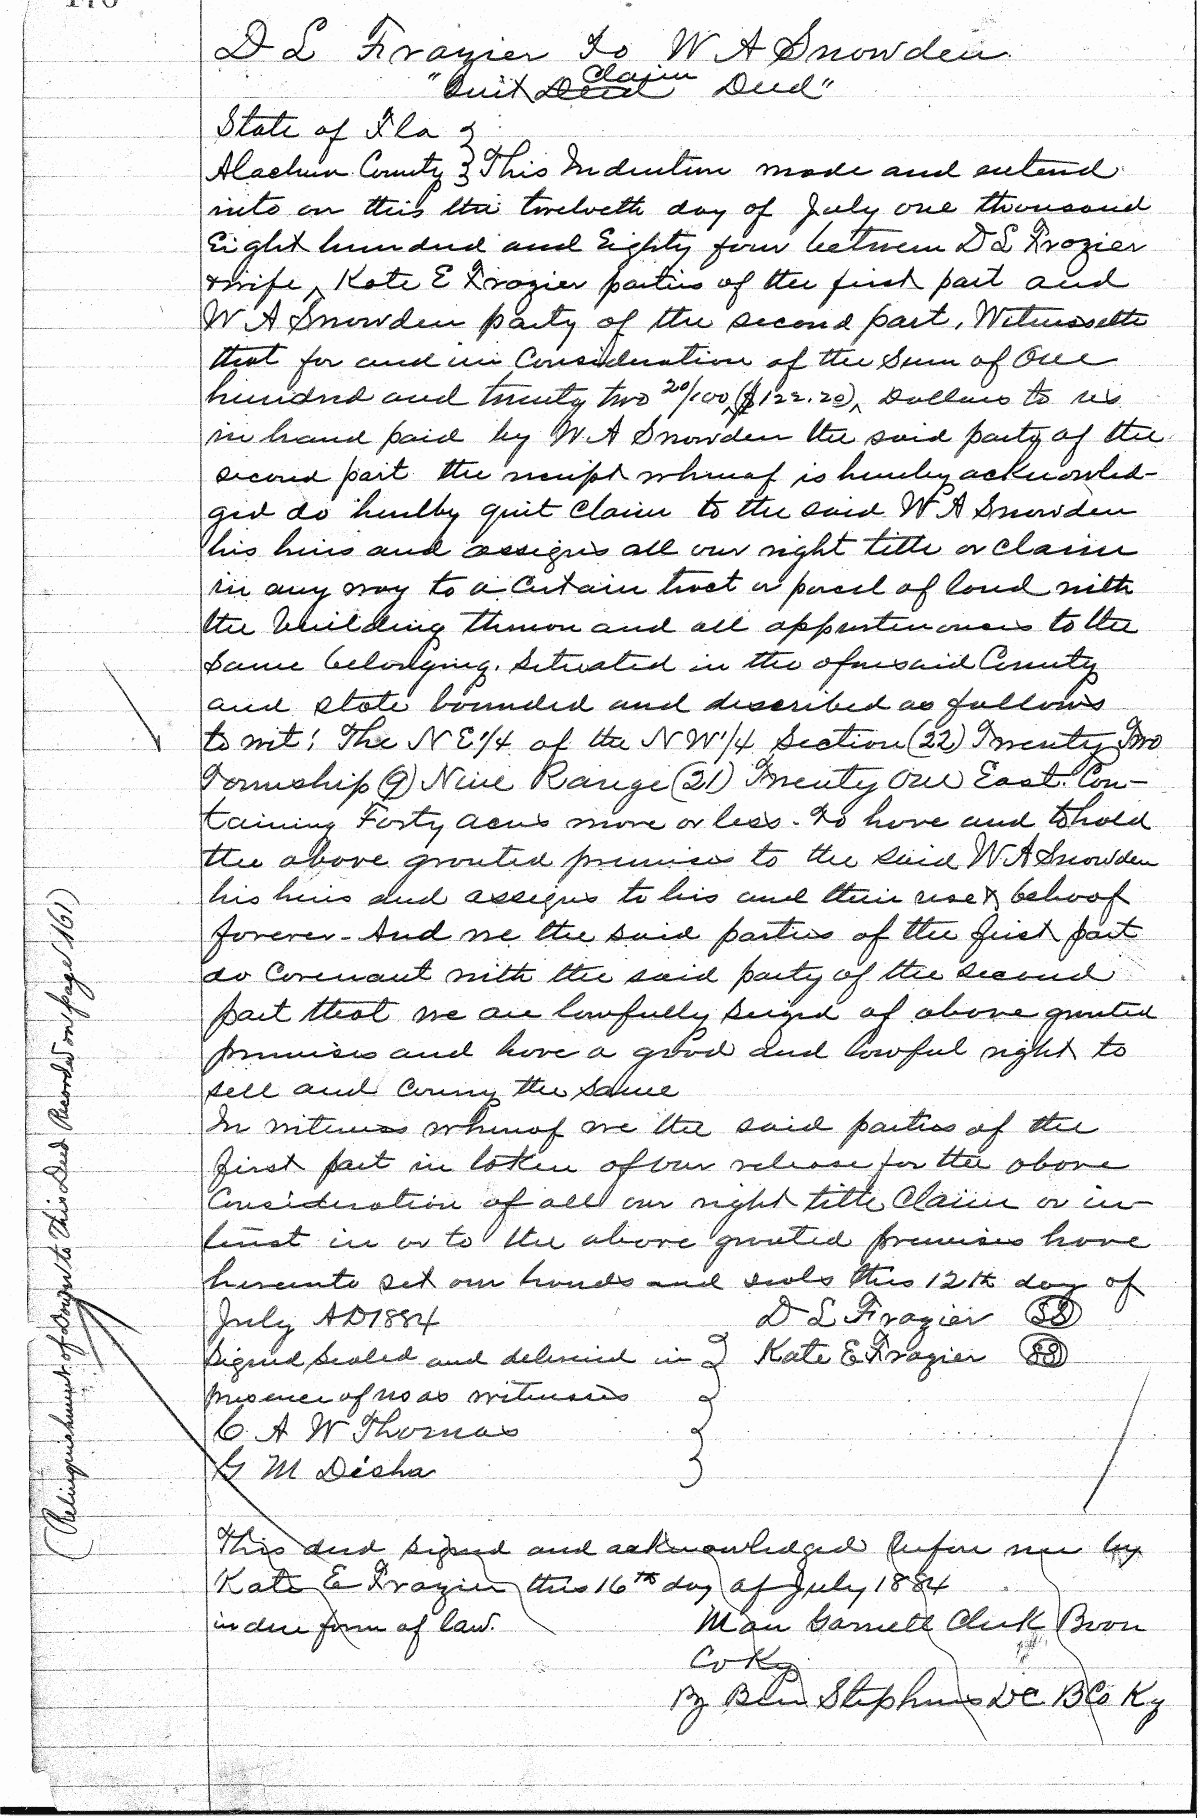 D L Frazier to W A Snowden
"Quit Deed Claim Deed"
State of Fla }
Alachua County } This Indenture made and entend
into on this the twelveth day of July one thousand
Eight hundred and Eighty four between D L Frazier
& wife ^ Kate E Frazier parties of the first part and
W A Snowden party of the second part, Witnesseth
that for and in Consideration of the Sum of One
hundred and twenty two 20/100 ($122.20) Dollars to us
in hand paid by W A Snowden the said party of the
second part the receipt whereof is hereby acknowled-
ged do hereby quit claim to the said W A Snowden
his heirs and assigns all our right title or claim
in any way to a Certain tract or parcel of land with
the building thereon and all appurtenances to the
same belonging. Situated in the aforesaid County
and state bounded and described as follows
to wit: The N E 1/4 of the N W 1/4 Section (22) Twenty Two
Township (9) Nine Range (21) Twenty One East. Con-
taining Forty acres more or less. To have and to hold
the above granted premises to the said W A Snowden
his heirs and assigns to his and their use & behoof
forever - And we the said parties of the first part
do Covenant with the said party of the second
part that we are lawfully seized of above granted
premises and have a good and lawful right to
sell and convey the same
In witness whereof we the said parties of the
first part in token of our release for the above
Consideration of all our right title Claim or in-
terest in or to the above granted premises have
hereunto set our hands and seals this 12th day of
July AD 1884 D L Frazier SS
Signed Sealed and delivered in } Kate E Frazier SS
presence of us as witnesses }
C. A W Thomas }
G M Disha }
This deed signed and acknowledged before me by
Kate E Frazier this 16th day of July 1884
in due form of law. Garnett Clerk Boon
Co Ky
By Ben Stephens DC B Co Ky
(Relinquishment of Dower to this Deed Recorded on page (161)